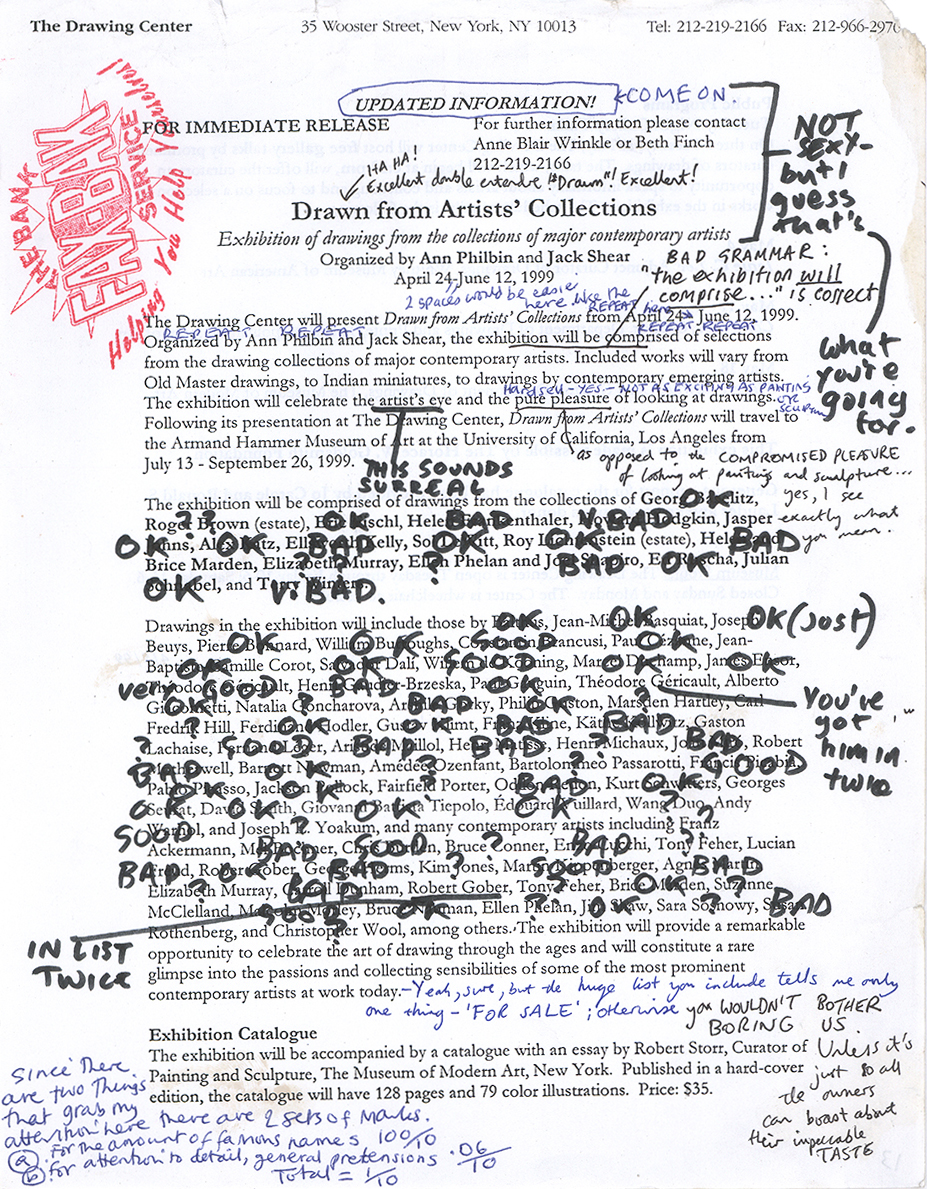 The Drawing Center 35 Wooster Street, New York, NY 10013 Tel: 212-219-2166 Fax: 212-966-2976
UPDATED INFORMATION! COME ON
FOR IMMEDIATE RELEASE For further information please contact
Anne Blair Wrinkle or Beth Finch
212-219-2166
THE BANK
FAX BAX
SERVICE
Helping You Help Yourselves!
HA HA!
Excellent double entendre "Drawn"! Excellent!
Drawn from Artists' Collections
Exhibition of drawings from the collections of major contemporary artists
Organized by Ann Philbin and Jack Shear
April 24-June 12, 1999
NOT
SEXY-
but I
guess
that's
what
you're
going
for.
BAD GRAMMAR:
"the exhibition will
comprise..." is correct
2 spaces would be easier
here like the REPEAT here
The Drawing Center will present Drawn from Artists' Collections from April 24 - June 12, 1999.
REPEAT REPEAT REPEAT REPEAT
Organized by Ann Philbin and Jack Shear, the exhibition will be comprised of selections
from the drawing collections of major contemporary artists. Included works will vary from
Old Master drawings, to Indian miniatures, to drawings by contemporary emerging artists.
YES - NOT AS EXCITING AS PANTING OR
The exhibition will celebrate the artist's eye and the pure pleasure of looking at drawings.
Following its presentation at The Drawing Center, Drawn from Artists' Collections will travel to
the Armand Hammer Museum of Art at the University of California, Los Angeles from
July 13 - September 26, 1999.
THIS SOUNDS
SURREAL
as opposed to the COMPROMISED PLEASURE
of looking at paintings and sculpture...
yes, I see
exactly what
you mean.
The exhibition will be comprised of drawings from the collections of Georg Baselitz,
OK
Roger Brown (estate), Eric Fischl, Helen Frankenthaler, Howard Hodgkin, Jasper
? ? OK BAD V.BAD OK
Johns, Alex Katz, Ellsworth Kelly, Sol LeWitt, Roy Lichtenstein (estate), Helen
OK OK BAD OK OK BAD
Brice Marden, Elizabeth Murray, Ellen Phelan and Joel Shapiro, Ed Ruscha, Julian
? ? BAD OK
Schnabel, and Terry Winters.
OK V.BAD.
Drawings in the exhibition will include those by Balthus, Jean-Michel Basquiat, Joseph
OK OK OK (JUST)
Beuys, Pierre Bonnard, William Burroughs, Constantin Brancusi, Paul Cézanne, Jean-
OK OK OK
Baptiste Camille Corot, Salvador Dalí, Willem de Kooning, Marcel Duchamp, James Ensor,
OK OK OK
Théodore Géricault, Henri Gaudier-Brzeska, Paul Gauguin, Théodore Géricault, Alberto
very GOOD ? BAD OK
Giacometti, Natalia Goncharova, Arshile Gorky, Philip Guston, Marsden Hartley, Carl
OK ? BAD OK ?
You've
got
him in
twice
Fredrik Hill, Ferdinand Hodler, Gustav Klimt, Franz Kline, Käthe Kollwitz, Gaston
? ? BAD
Lachaise, Fernand Léger, Aristide Maillol, Henri Matisse, Henri Michaux, Robert
? BAD BAD ? BAD
Motherwell, Barnett Newman, Amédée Ozenfant, Bartolommeo Passarotti, Francis Picabia,
BAD OK ? ? GOOD
Pablo Picasso, Jackson Pollock, Fairfield Porter, Odilon Redon, Kurt Schwitters, Georges
OK OK ? BAD OK
Seurat, David Smith, Giovanni Battista Tiepolo, Édouard Vuillard, Wang Duo, Andy
OK OK OK ? ?
Warhol, and Joseph E. Yoakum, and many contemporary artists including Franz
GOOD ? ?
Ackermann, Mel Bochner, Chris Burden, Bruce Conner, Enzo Cucchi, Tony Feher, Lucian
BAD GOOD ? BAD ?
Freud, Robert Gober, George Herms, Kim Jones, Martin Kippenberger, Agnes Martin,
BAD BAD ? GOOD BAD
Elizabeth Murray, Carroll Dunham, Robert Gober, Tony Feher, Brice Marden, Suzanne
? BAD ?
McClelland, Malcolm Morley, Bruce Nauman, Ellen Phelan, Jim Shaw, Sara Sosnowy, Susan
? OK ? OK ? BAD
Rothenberg, and Christopher Wool, among others. The exhibition will provide a remarkable
opportunity to celebrate the art of drawing through the ages and will constitute a rare
glimpse into the passions and collecting sensibilities of some of the most prominent
contemporary artists at work today.
IN LIST
TWICE
- Yeah, sure, but the huge list you include tells me only
one thing - 'FOR SALE'; otherwise you WOULDN'T BOTHER
BORING US.
Unless it's
just so all
the owners
can boast about
their impecable
TASTE
Exhibition Catalogue
The exhibition will be accompanied by a catalogue with an essay by Robert Storr, Curator of
Painting and Sculpture, The Museum of Modern Art, New York. Published in a hard-cover
edition, the catalogue will have 128 pages and 79 color illustrations. Price: $35.
Since there
are two things
that grab my
attention here there are 2 sets of marks.
(a) For the amount of famous names 100/10
(b) for attention to detail, general pretensions .06/10
Total = 1/10